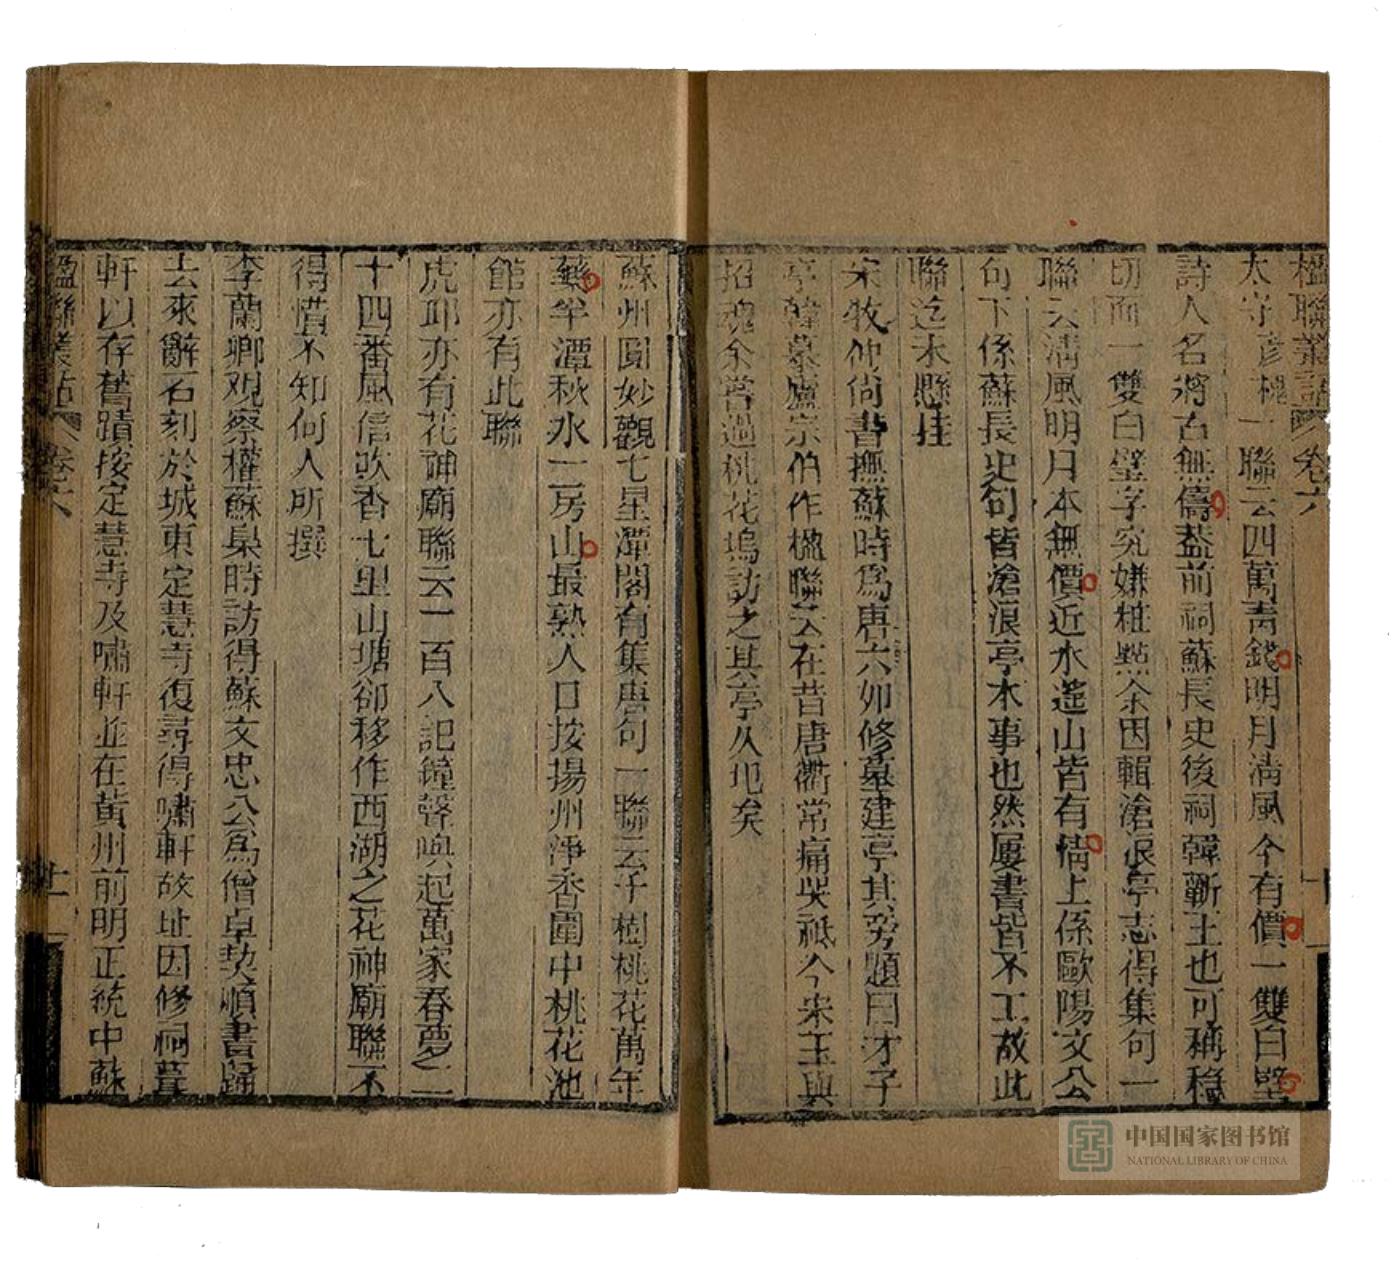 楹聯叢話 卷六
太守彥槐一聯云四萬青錢明月清風今有價一雙白璧
詩人名將古無儔蓋前祠蘇長史後祠韓蘄王也可稱穩
切而一雙白璧字究嫌粧點余因輯滄浪亭志得集句一
聯云清風明月本無價近水遙山皆有情上係歐陽文公
句下係蘇長史句皆滄浪亭本事也然屢書皆不工故此
聯迄未懸挂
宋牧仲尚書撫蘇時爲唐六如修墓建亭其旁題曰才子
亭韓慕廬宗伯作楹聯云在昔唐衢常痛哭祇今宋玉與
招魂余嘗過桃花塢訪之其亭久圯矣
蘇州圓妙觀七星潭閣有集唐句一聯云千樹桃花萬年
藥半潭秋水一房山最熟人口按揚州淨香園中桃花池
館亦有此聯
虎邱亦有花神廟聯云一百八記鐘聲喚起萬家春夢二
十四番風信吹香七里山塘卻移作西湖之花神廟聯不
得惜不知何人所撰
李蘭卿觀察權蘇臬時訪得蘇文忠公爲僧卓契順書歸
去來辭石刻於城東定慧寺復尋得嘯軒故址因修祠葺
軒以存舊蹟按定慧寺及嘯軒並在黃州前明正統中蘇
楹聯叢話 卷六
中国国家图书馆
NATIONAL LIBRARY OF CHINA